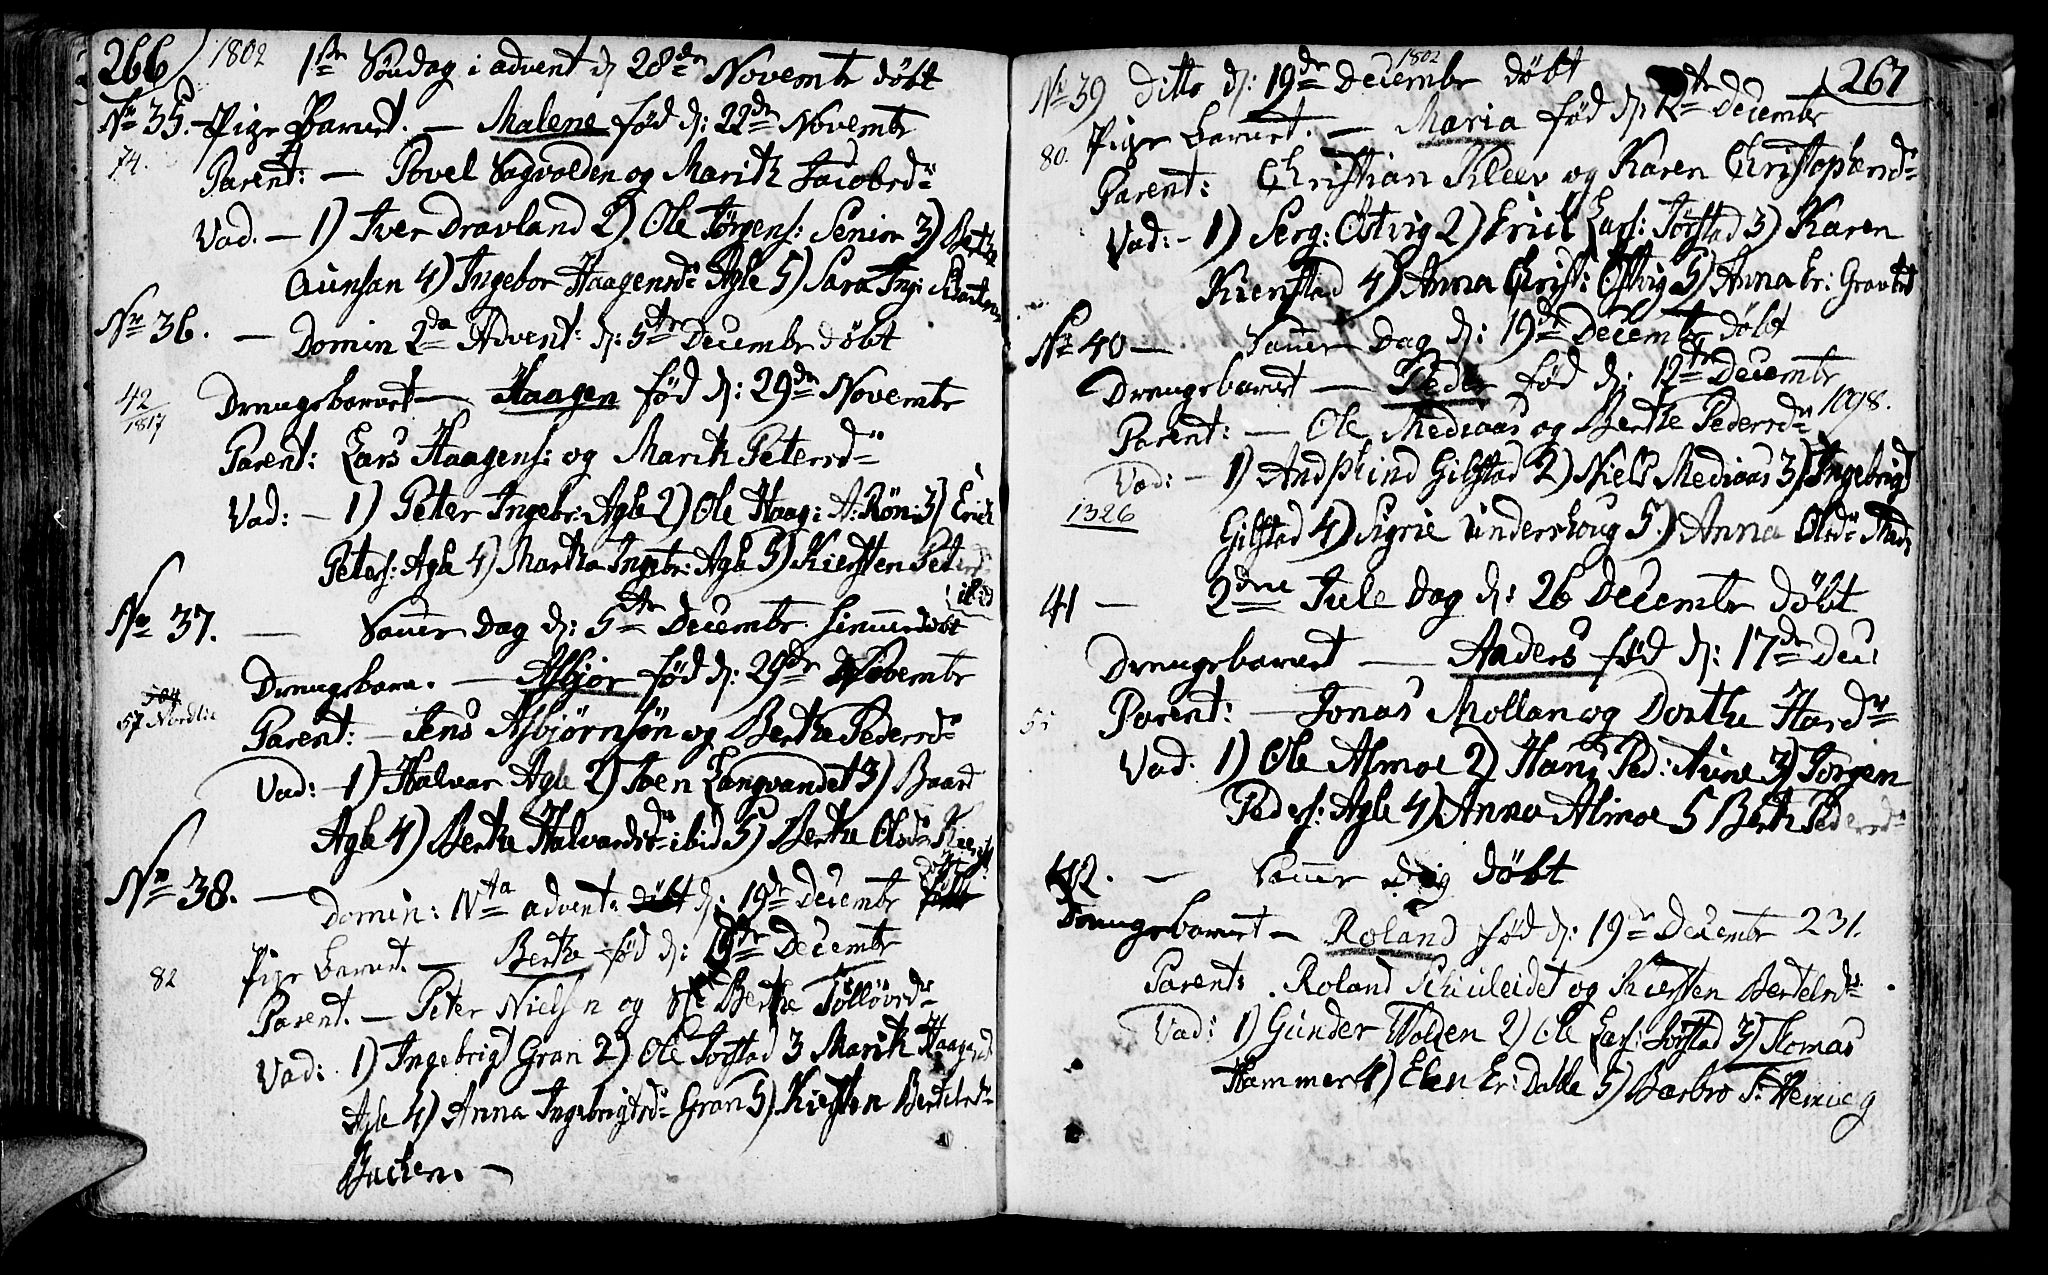 266 1802 1ste Söndag i advent d: 28de Novembr döbt
No 35. Pige Barnet. — Malene föd d: 22de Novembr
74. Parent: — Povel Sagvolden og Marith Jacobsd:
Vad. — 1) Iver Dravland 2) Ole Jörgens: Senior 3) Berthe
Aunsan 4) Ingebor Haagensd: Agle 5) Sara Ing:
No 36. — Domin 2da Advent: d: 5te Decembr döbt
42/1817 Drengebarnet — Haagen föd d: 29de Novembr
Parent: Lars Haagens: og Marith Petersd:
Vad: — 1) Peter Ingebr: Agle 2) Ole Haag: A: Rön: 3) Erich
Peters: Agle 4) Martha Ingebr: Agle 5) Kiersten Peters
ibid
No 37. — Samme Dag d: 5te Decembr hiemmedöbt
Drengebarn. — Asbjör föd d: 29de Novembr
57 Nordlie Parent: — Jens Asbjörnsön og Berthe Pedersd:
Vad: — 1) Halvar Agle 2) Joen Langvandet 3) Baard
Agle 4) Berthe Halvardsd: ibid 5) Berthe Olsd:
No 38. — Domin: IVta advent: döbt d: 19de Decembr döbt
82 Pige Barnet. — Berthe föd d: 19de Decembr
Parent. — Peter Nielsen og Berthe Tollövsd:
Vad: 1) Ingebrigt Gran 2) Ole Torstad 3 Marith Haagensd
Agle 4) Anna Ingebrigtsd: Gran 5) Kiersten Bertelsd:
Bachen. —
267
1802
No 39 Ditto d: 19de Decembr döbt
Pige barnet. — Maria föd d: 12te Decembr
80. Parent: Christian Kleev og Karen Christophersd:
Vad: — 1) Serg: Östvig 2) Erich Lars: Torstad 3) Karen
Kienstad 4) Anna Christ: Östvig 5) Anna Er:
No 40 — Samme Dag d: 19de Decembr döbt
Drengebarnet — Peder föd d: 12te Decembr
Parent: — Ole Mediaas og Berthe Pedersd: 1098.
Vad: — 1) Gilstad 2) Niels Mediaas 3) Ingebrigt
1326 Gilstad 4) Sigrie Undershoug 5.) Anna Olsd:
41 — 2den Jule Dag d: 26 Decembr döbt
Drengebarnet — Anders föd d: 17de Dec:
Parent: — Jonas Mollan og Dorthe
Vad. 1) Ole Almoe 2) Hans Ped: Aune 3) Jörgen
Peders: Agle 4) Anna Almoe 5 Berth Pedersd:
42. — Samme Dag döbt
Drengebarnet — Roland föd d: 19de Decembr 231.
Parent: Roland og Kiersten Bertelsd:
Vad: 1) Gunder Wolden 2) Ole Lars: Torstad 3) Thomas
Hammer 4) Elen Er: Dahle 5) Barbro